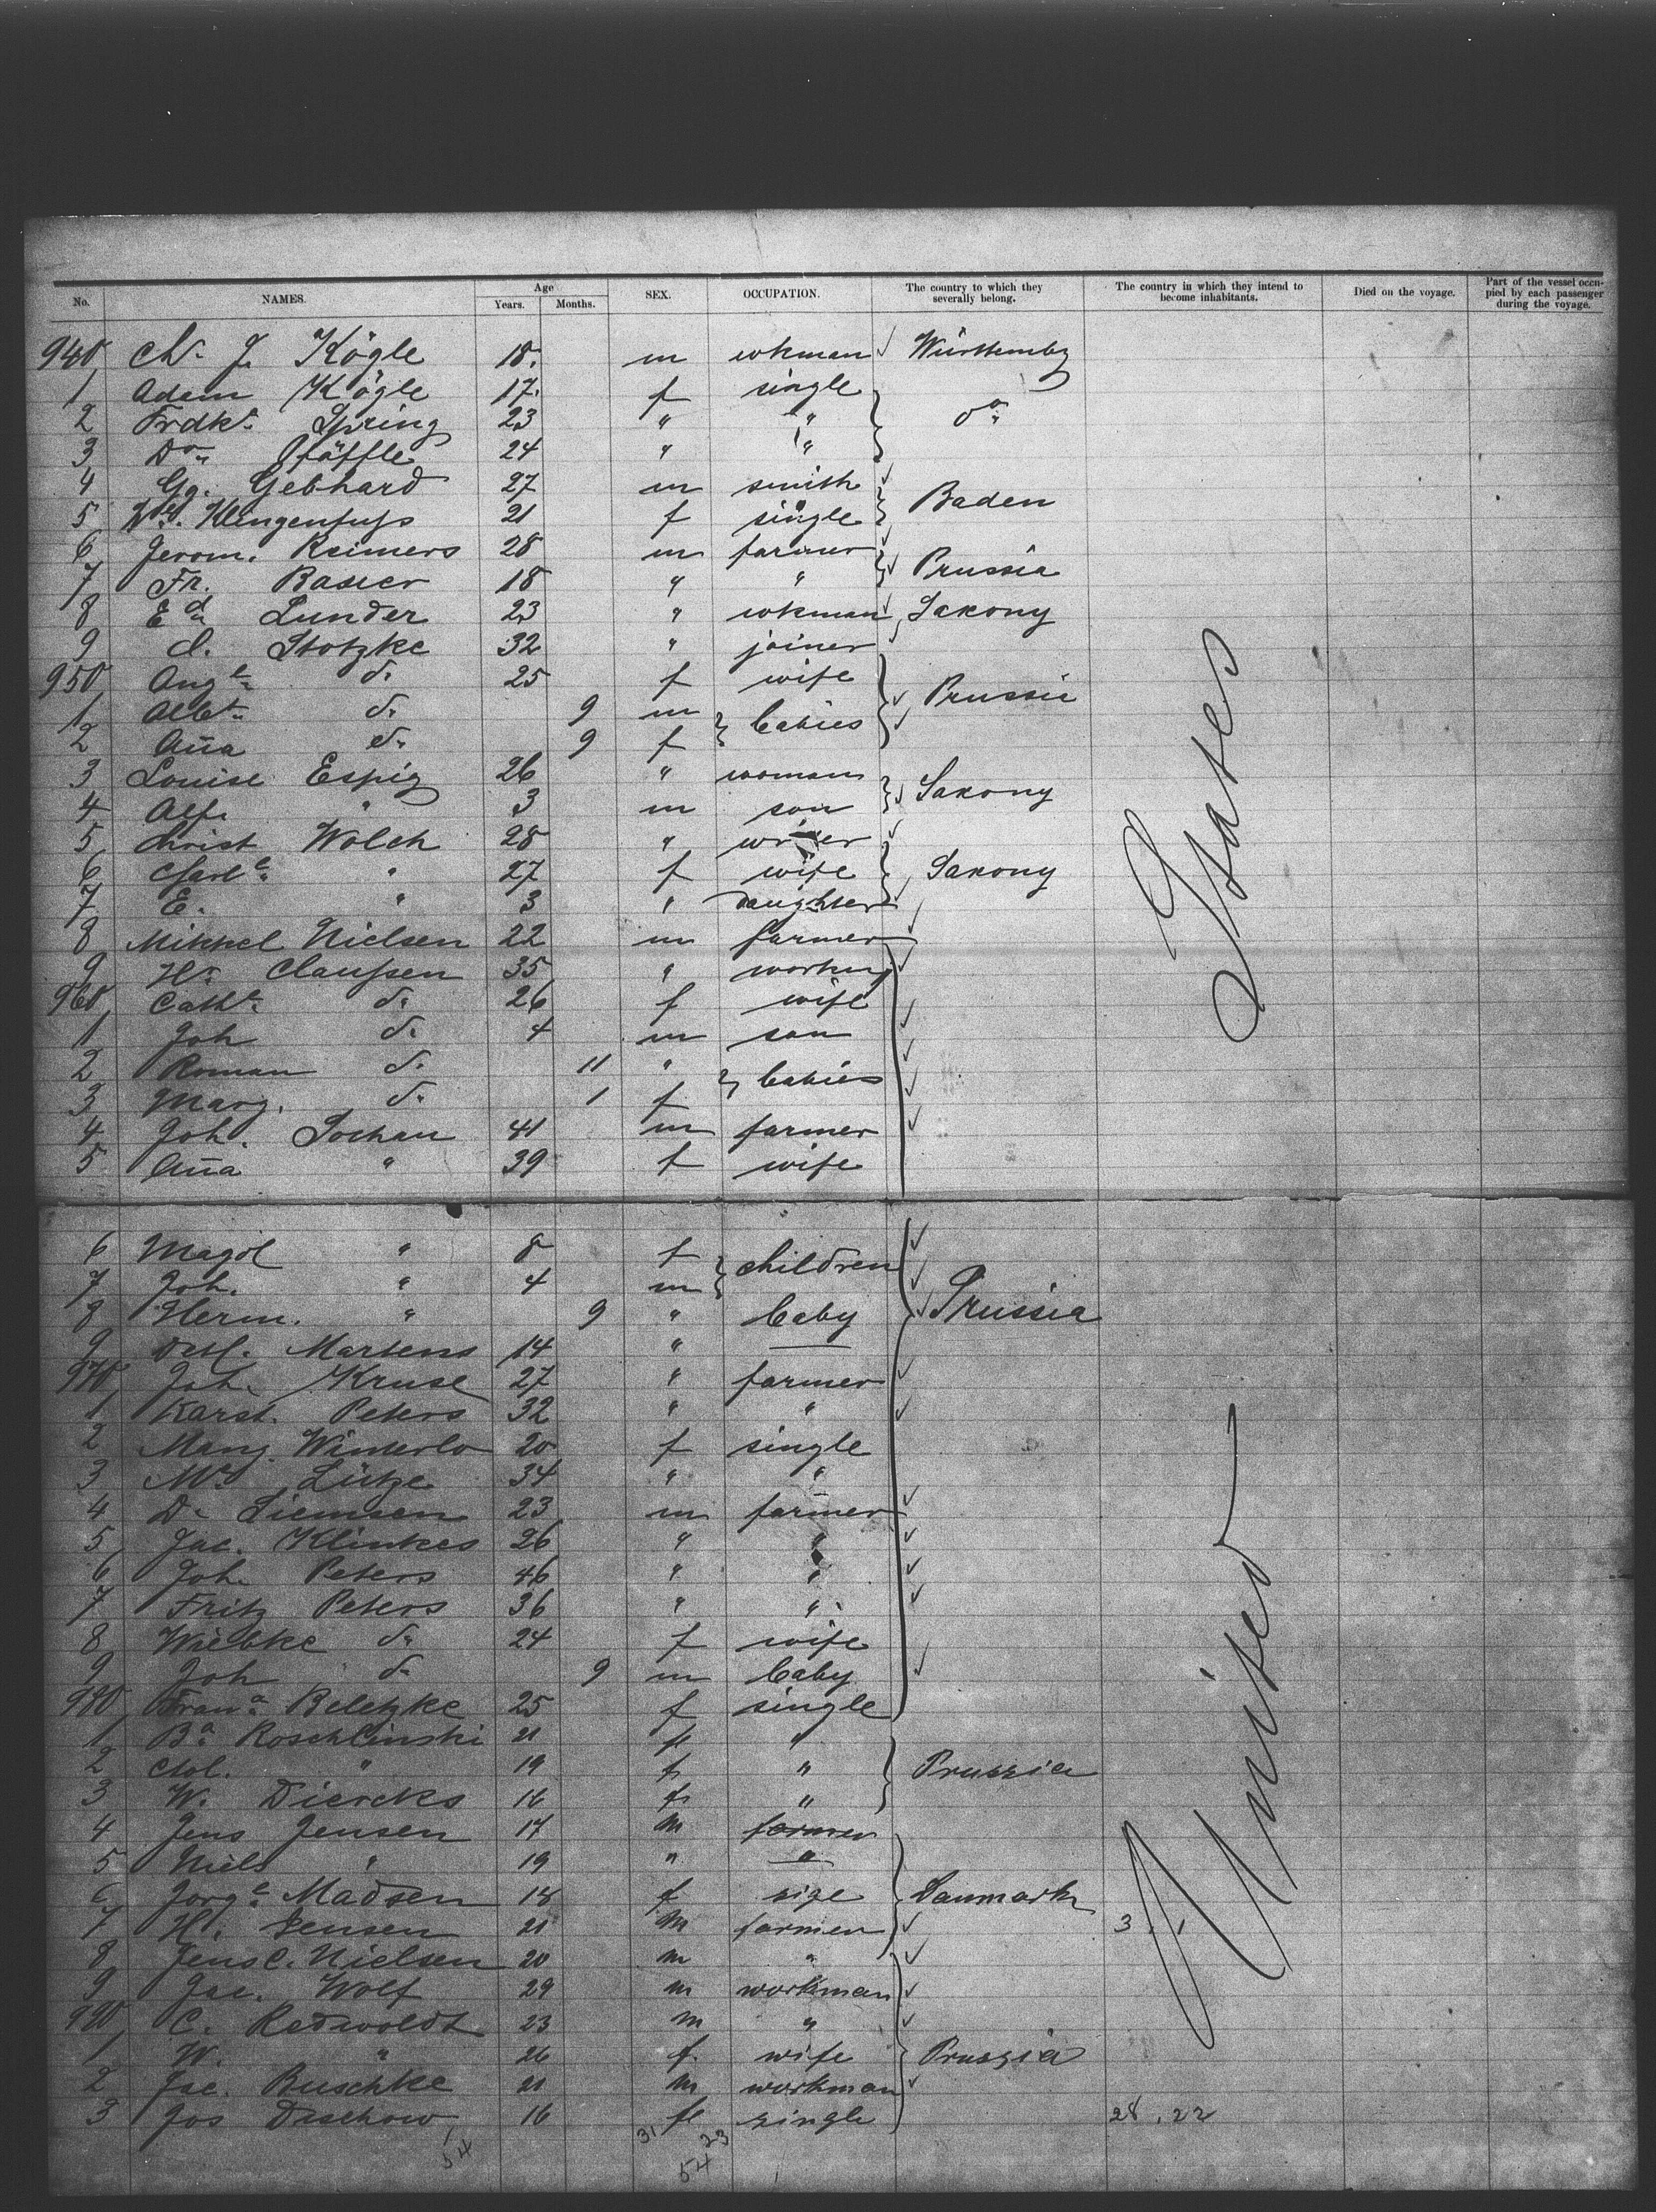 No. NAMES. Age Years. Months. SEX. OCCUPATION. The country to which they severally belong. The country in which they intend to become inhabitants. Died on the voyage. Part of the vessel occupied by each passenger during the voyage.
940 Kögle 18. m wkman Württembg
1 Adam Kögle 17. f single
2 Frdke. Spring 23 " " do.
3 Do. 24 " "
4 Gg. Gebhard 27 m smith
5 Klingenfuss 21 f single Baden
6 Jerom. Reimers 28 m farmer
7 Fr. 18 " " Prussia
8 Ed. Lunder 23 " wkman Saxony
9 C. Stotzke 32 " joiner
950 Auge. d. 25 f wife Prussia
1 Albt. d. 9 m babies
2 Aña d. 9 f
3 Louise Espig 26 " woman Saxony
4 Alf. " 3 m son
5 Christ Wolch 28 "
6 Charle. " 27 f wife Saxony
7 E. " 3 " daughter
8 Mikkel Nielsen 22 m farmer
9 Hr. Claussen 35 "
960 Cathe. d. 26 f wife
1 Joh d. 4 m son
2 Roman d. 11 " babies
3 Marg. d. 1 f
4 Joh. 41 m farmer
5 Aña " 39 f wife
6 Magdl " 8 f children
7 Joh. " 4 m
8 Herm. " 9 " baby Prussia
9 Detl. Martens 14 " —
970 Joh. Kruse 27 " farmer
1 Karst. Peters 32 " "
2 Marg. 20 f single
3 Lütze 34 " "
4 D. Siemsen 23 m farmer
5 Jac. 26 " "
6 Joh. Peters 46 " "
7 Fritz Peters 36 " "
8 Wiebke d. 24 f wife
9 Joh d. 9 m baby
980 Frana. Beletzke 25 f single
1 Ba. Roschlinski 21 f "
2 " 19 f " Prussia
3 W. Diercks 16 f "
4 Jens Jensen 17 m farmer
5 Niels " 19 " "
6 Jorge. Madsen 18 f Danmark
7 H. Jensen 21 m farmer 3, 1
8 Jens C. Nielsen 20 m "
9 Jac. Wolf 29 m workman
990 C. Radwoldt 23 m "
1 W. " 26 f. wife Prussia
2 Jac. Buschke 21 m workman
3 Jos Drschow 16 f single 28, 22
54 31 23
54
United States